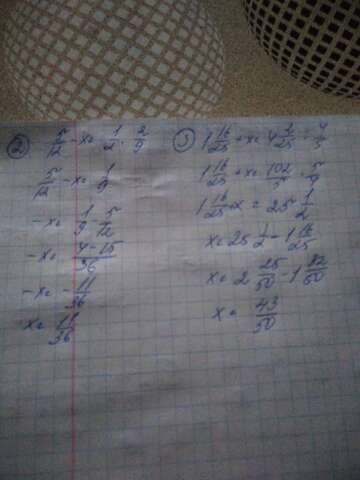 2) 5/12 - x = 1/2 · 2/9
5/12 - x = 1/9
-x = 1/9 - 5/12
-x = 4-15/36
-x = -11/36
x = 11/36
3) 1 16/25 + x =
1 16/25 + x = 102/5 · 5/9
1 16/25 + x = 25 1/2
x = 25 1/2 - 1 16/25
x = 2 25/50 - 1 32/50
x = 43/50